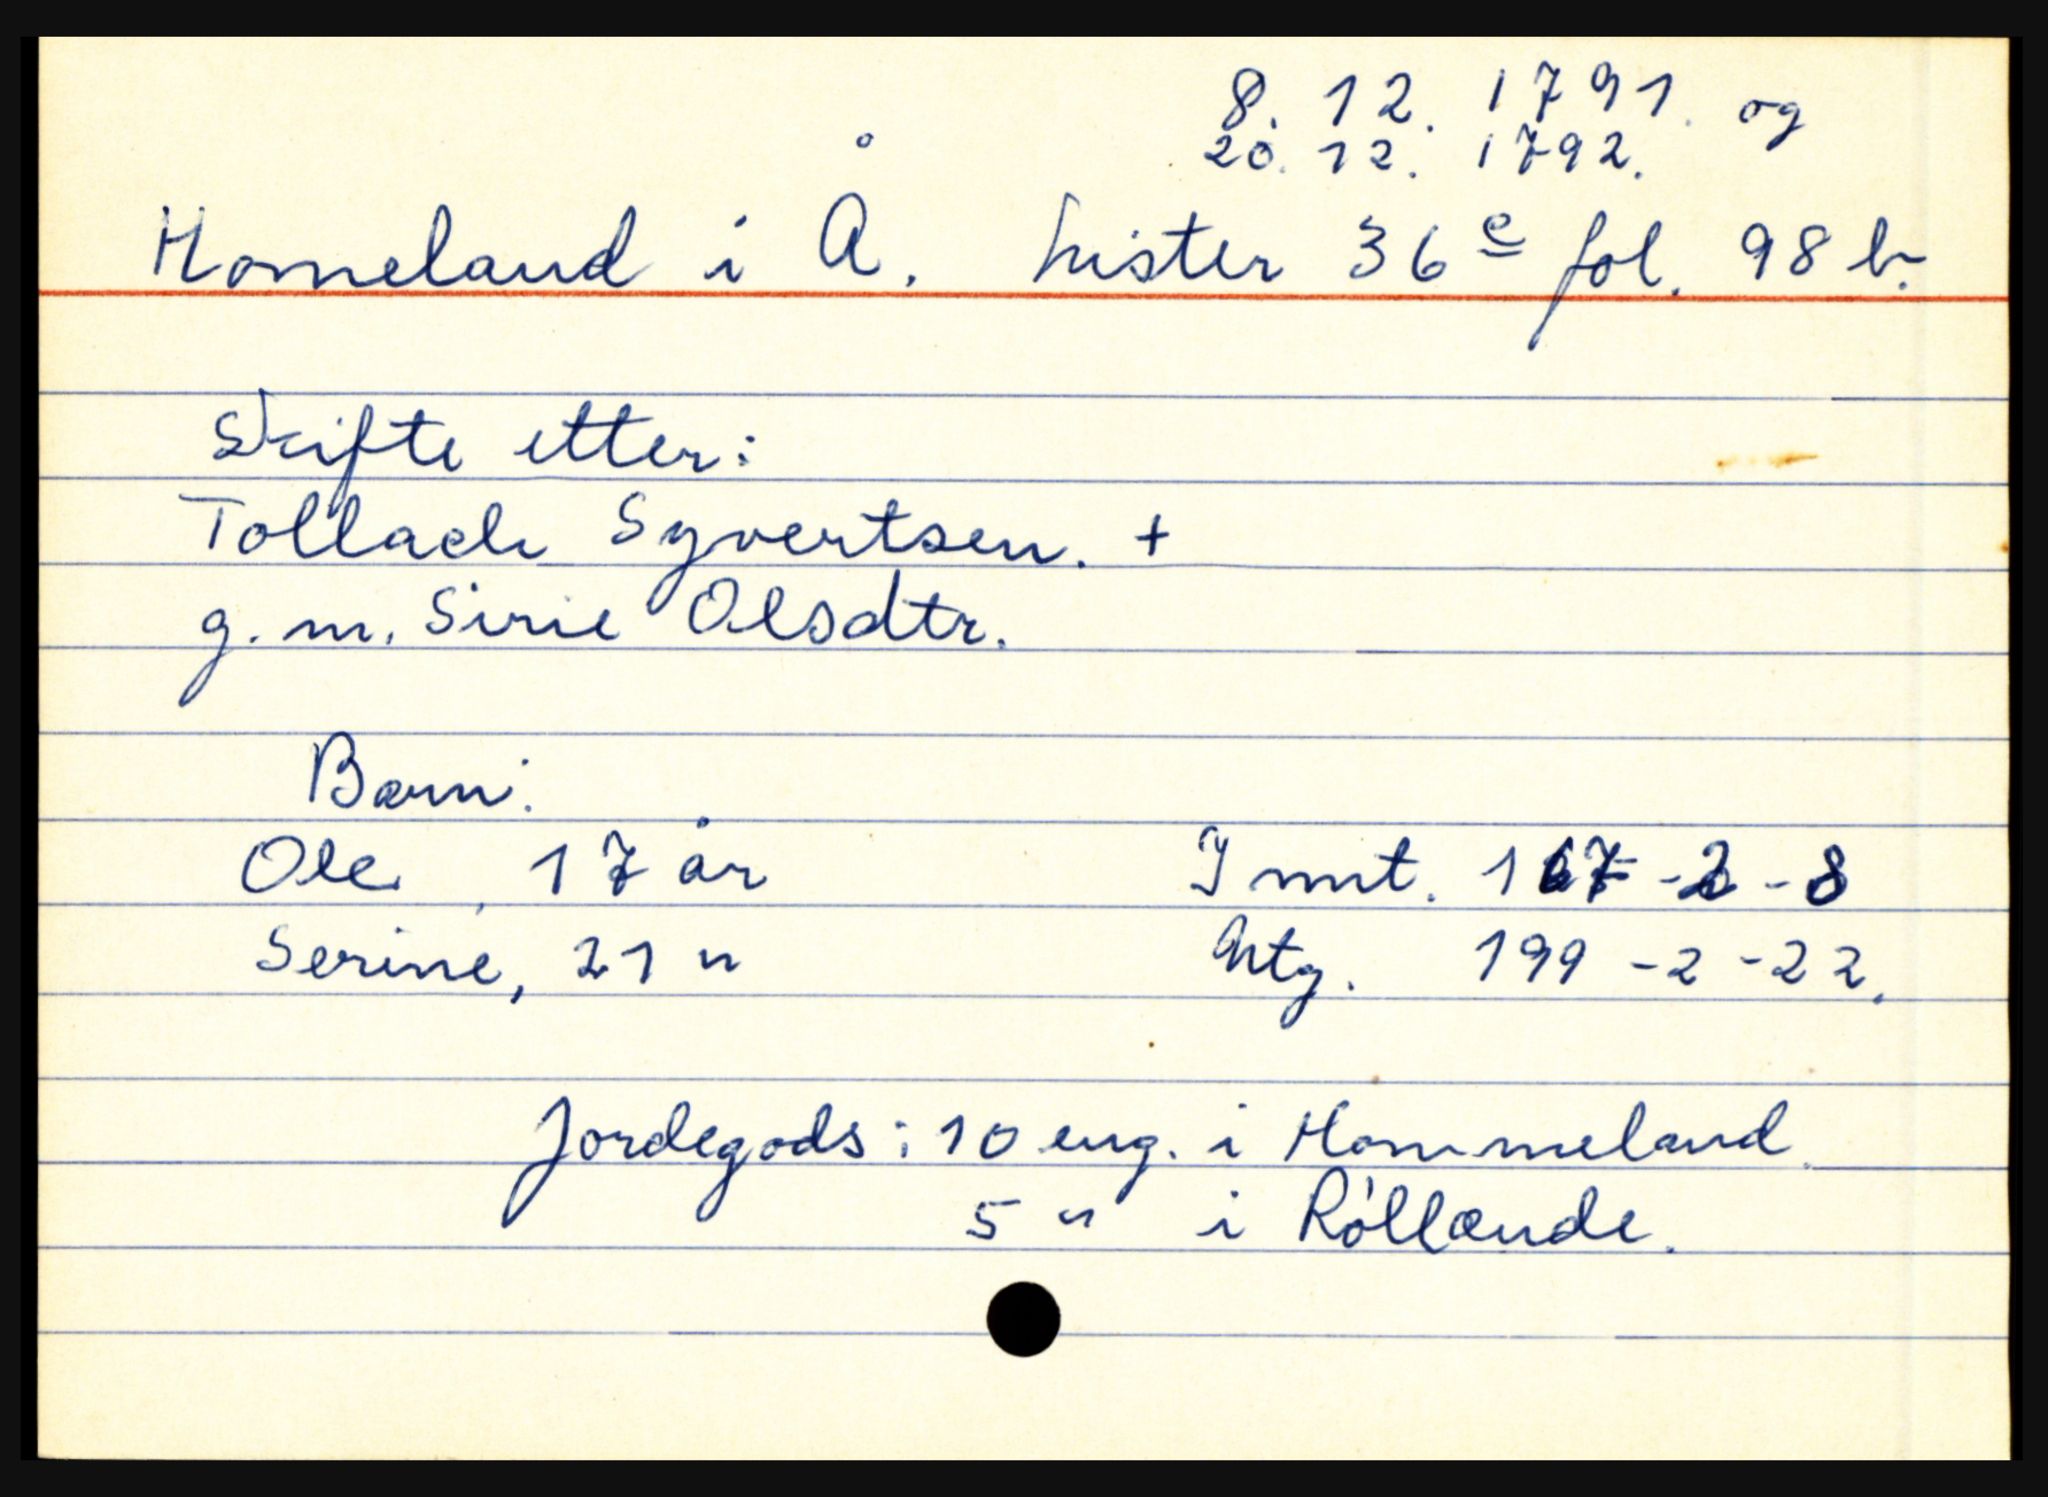 8. 12. 1791. og
20. 12. 1792.
Homeland i Å. Lister 36 e fol. 98 b.
Skifte etter:
Tollach Syvertsen. +
g. m. Sirie Olsdtr.
Barn:
Ole, 17 år Innt. 167 - 2 - 8
Serine, 21 " Utg. 199 - 2 - 22.
Jordegods: 10 eng. i Hommeland.
5 " i Röllænde.